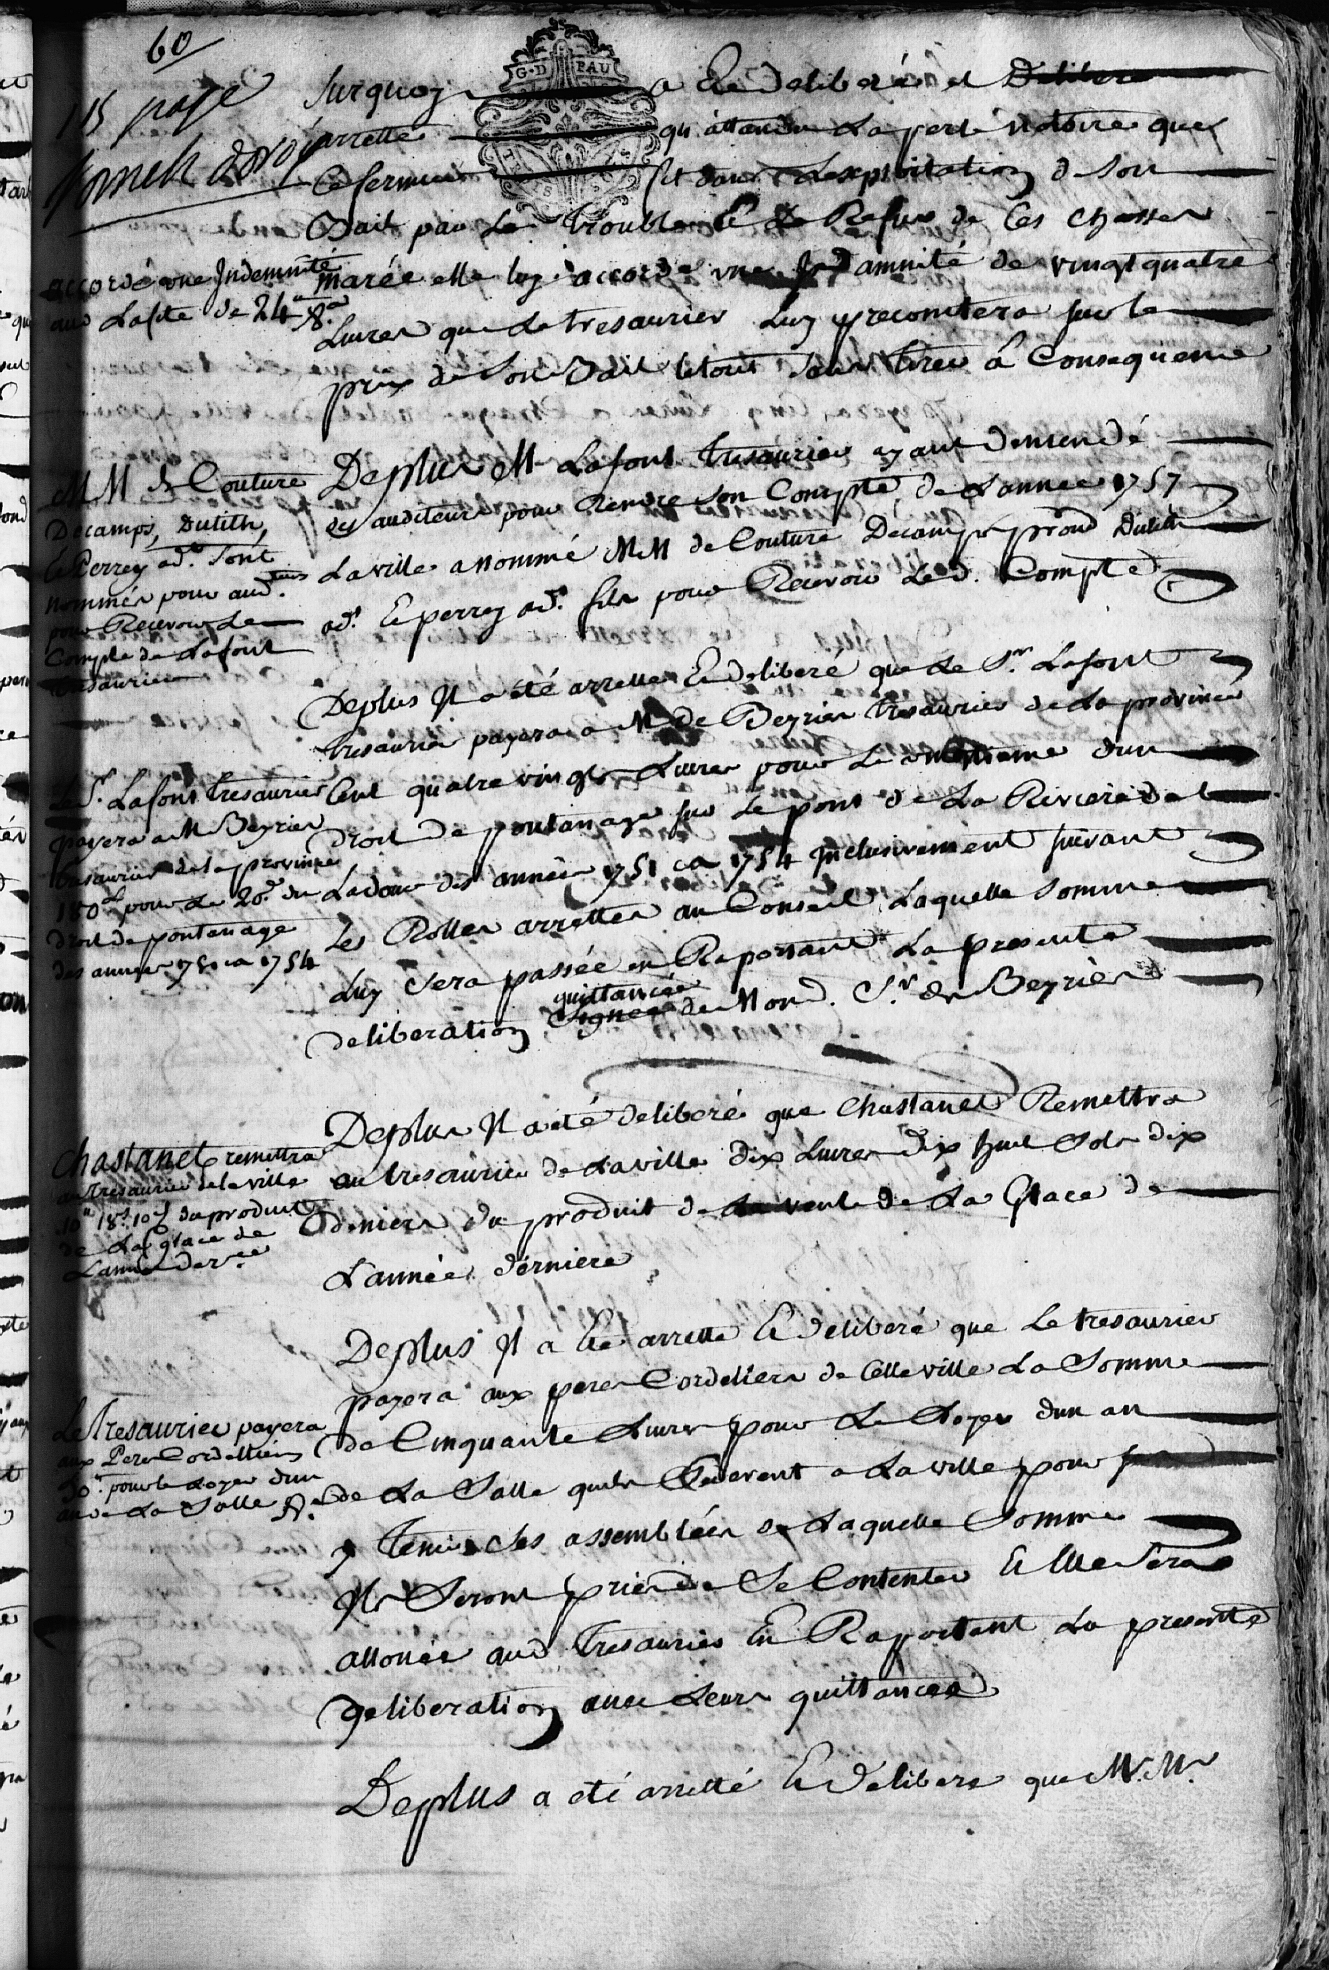 60
115 page
G·D PAU
Surquoy a Eté deliberé et Delibere
arretté qu'attandu La perte notoire que
Ce fermier fit dans Lexploitation de Son
Bail par Le trouble Et Le Refus de Ces Chasses
accordé une Indemnité
aud Lafite de 24ᵗᵗ &ᵃ
marée elle luy accorde une Indamnité de vingt quatre
Livres que Le tresaurier Luy precomtera sur le
prix de Son Bail le tout Sans tirer â Consequence
MM de Couture
Decamps, Dutilh,
Eperrey ad.ᵗ Sont
nommés pour aud.teurs
pour Recevoir Le
Compte de Lafont
tresaurier
Deplus Mr Lafont tresaurier ayant demendé
des auditeurs pour Rendre Son Compte de Lannee 1757
La ville a nommé MM de Couture Decamps Dutilh
ad.ᵗ Eperrey ad.ᵗ fils pour Recevoir Led. Compte
Deplus Il a été arretté Et deliberé que Le Sr. Lafont
tresaurier payera a Mr de Beyries tresaurier de La province
Le Sr. Lafont tresaurier
payera a Mr Beyries
tresaurier de la province
180ᵗᵗ pour Le 20.e du
droit de pontanage
des années 1751 a 1754
Cent quatre vingts Livres pour Le vingtieme dun
droit de pontanage sur Le pont de La Riviere de
Ladour des années 1751 a 1754 Inclusivement suivant
Les Rolles arrettés au Conseil Laquelle Somme
Luy Sera passée en Raportant La presente
quittancée
deliberation Signée de Mond. Sr. de Beyries
Deplus Il a eté deliberé que Chastanet Remettra
chastanet remettra
au tresaurier de la ville
10ᵗᵗ 18ˢ 10ᵈ du produit
de La glace de
Lannée der.ere
au tresaurier de La ville dix Livres dix huit Sols dix
deniers du produit de La vente de La Glace de
L'année derniere
Deplus Il a Eté arretté Et deliberé que Le tresaurier
payera aux peres Cordeliers de Cette ville La Somme
Le Tresaurier payera
aux Peres Cordelliers
50ᵗᵗ pour le Loyer d'un
an de La Salle &ᵃ
de Cinquante Livres pour Le Loyer dun an
de La Salle quils Reservent a La ville pour
y tenir Ses assemblées de Laquelle Somme
Ils Seront priés de Se Contenter Et Elle Sera
allouée aud tresaurier En Raportant La presente
deliberation avec Leurs quittances
Deplus a eté arretté Et delibere que M.rs M.rs